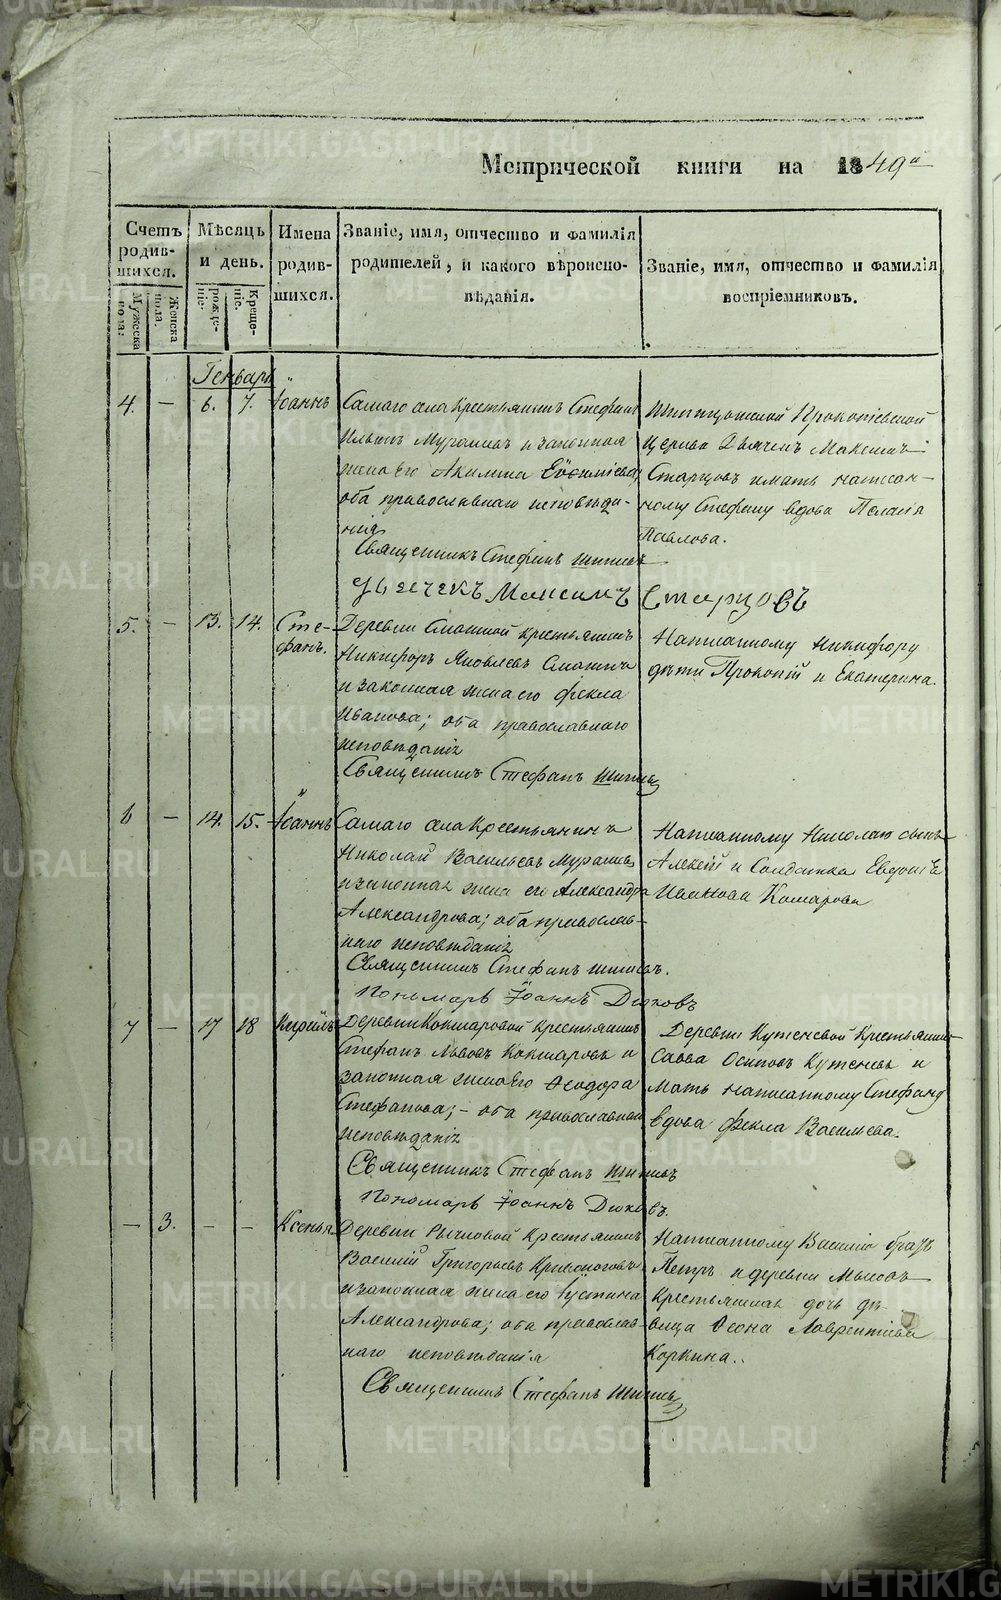 Метрической книги на 1849й
Счетъ родившихся.
Мужеска пола.
Женска пола.
Мѣсяцъ и день.
рожденіе.
Крещеніе.
Имена родившихся.
Званіе, имя, отчество и фамилія родителей, и какого вѣроисповѣданія.
Званіе, имя, отчество и фамилія воспріемниковъ.
Генварь
4. — 6. 7. Іоаннъ
Самаго села Крестьянинъ Стефанъ
и законная
жена его Акилина
оба православнаго исповѣда-
нія
Священникъ Стефанъ
Дьячекъ Максимъ Старцовъ
Прокопіевской
Церкви Дьячекъ Максимъ
Старцовъ и мать написан-
ному Стефану вдова Пелагія
Павлова.
5. — 13. 14. Сте-
фанъ.
Деревни крестьянинъ
Никифоръ Яковлевъ
и законная жена его Фекла
Иванова; оба православнаго
исповѣданія
Священникъ Стефанъ
Написанному Никифору
дѣти Прокопій и Екатерина.
6 — 14. 15. Іоаннъ
Самаго села Крестьянинъ
Николай Васильевъ
и законная жена его Александра
Александрова; оба православ-
наго исповѣданія
Священникъ Стефанъ
Пономарь Іоаннъ Дюковъ
Написанному Николаю сынъ
Алексѣй и Солдатка Евдокія
Иванова Комарова
7 — 17 18 Кирилъ
Деревни Кокшаровой Крестьянинъ
Стефанъ Львовъ Кокшаровъ и
законная жена его Ѳеодора
Стефанова; — оба православнаго
исповѣданія
Священникъ Стефанъ
Пономарь Іоаннъ Дюковъ.
Деревни Кутеневой Крестьянинъ
Савва Осиповъ Кутеневъ и
Мать написанному Стефану
вдова Фекла Васильева.
— 3. — — Ксенья
Деревни Рычковой Крестьянинъ
Василій Григорьевъ Кривоноговъ
и законная жена его Іустина
Александрова; оба православ-
наго исповѣданія
Священникъ Стефанъ
Написанному Василію братъ
Петръ и деревни Мысовъ
крестьянская дочь дѣ-
вица Ѳеона Лаврентіева
Коркина..
METRIKI.GASO-URAL.RU